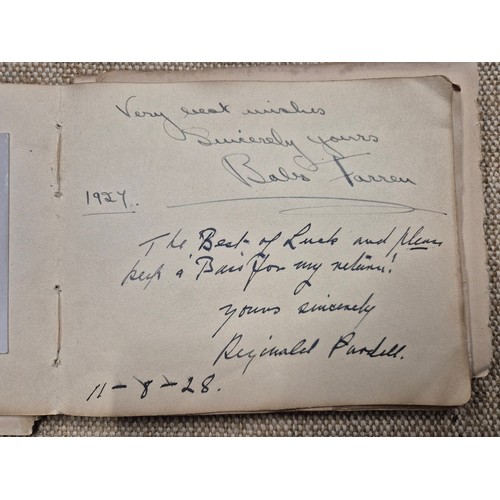 Very best wishes
Sincerely yours
Babs Farren
1927.
The Best of Luck and please
keep a 'Bass' for my return!
Yours sincerely
Reginald Purdell.
11-8-28.